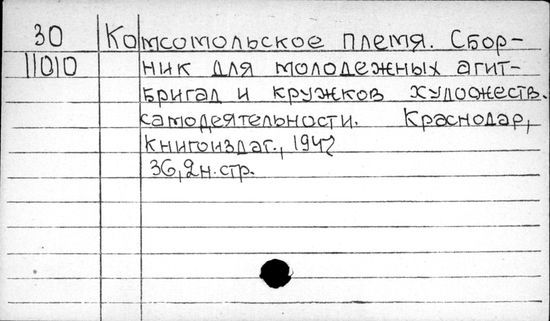 30 Комсомольское племя. Сбор-
11010 ник для молодежных агит-
бригад и кружков художеств.
самодеятельности. Краснодар,
Книгоиздат., 1947
36, 2н. стр.